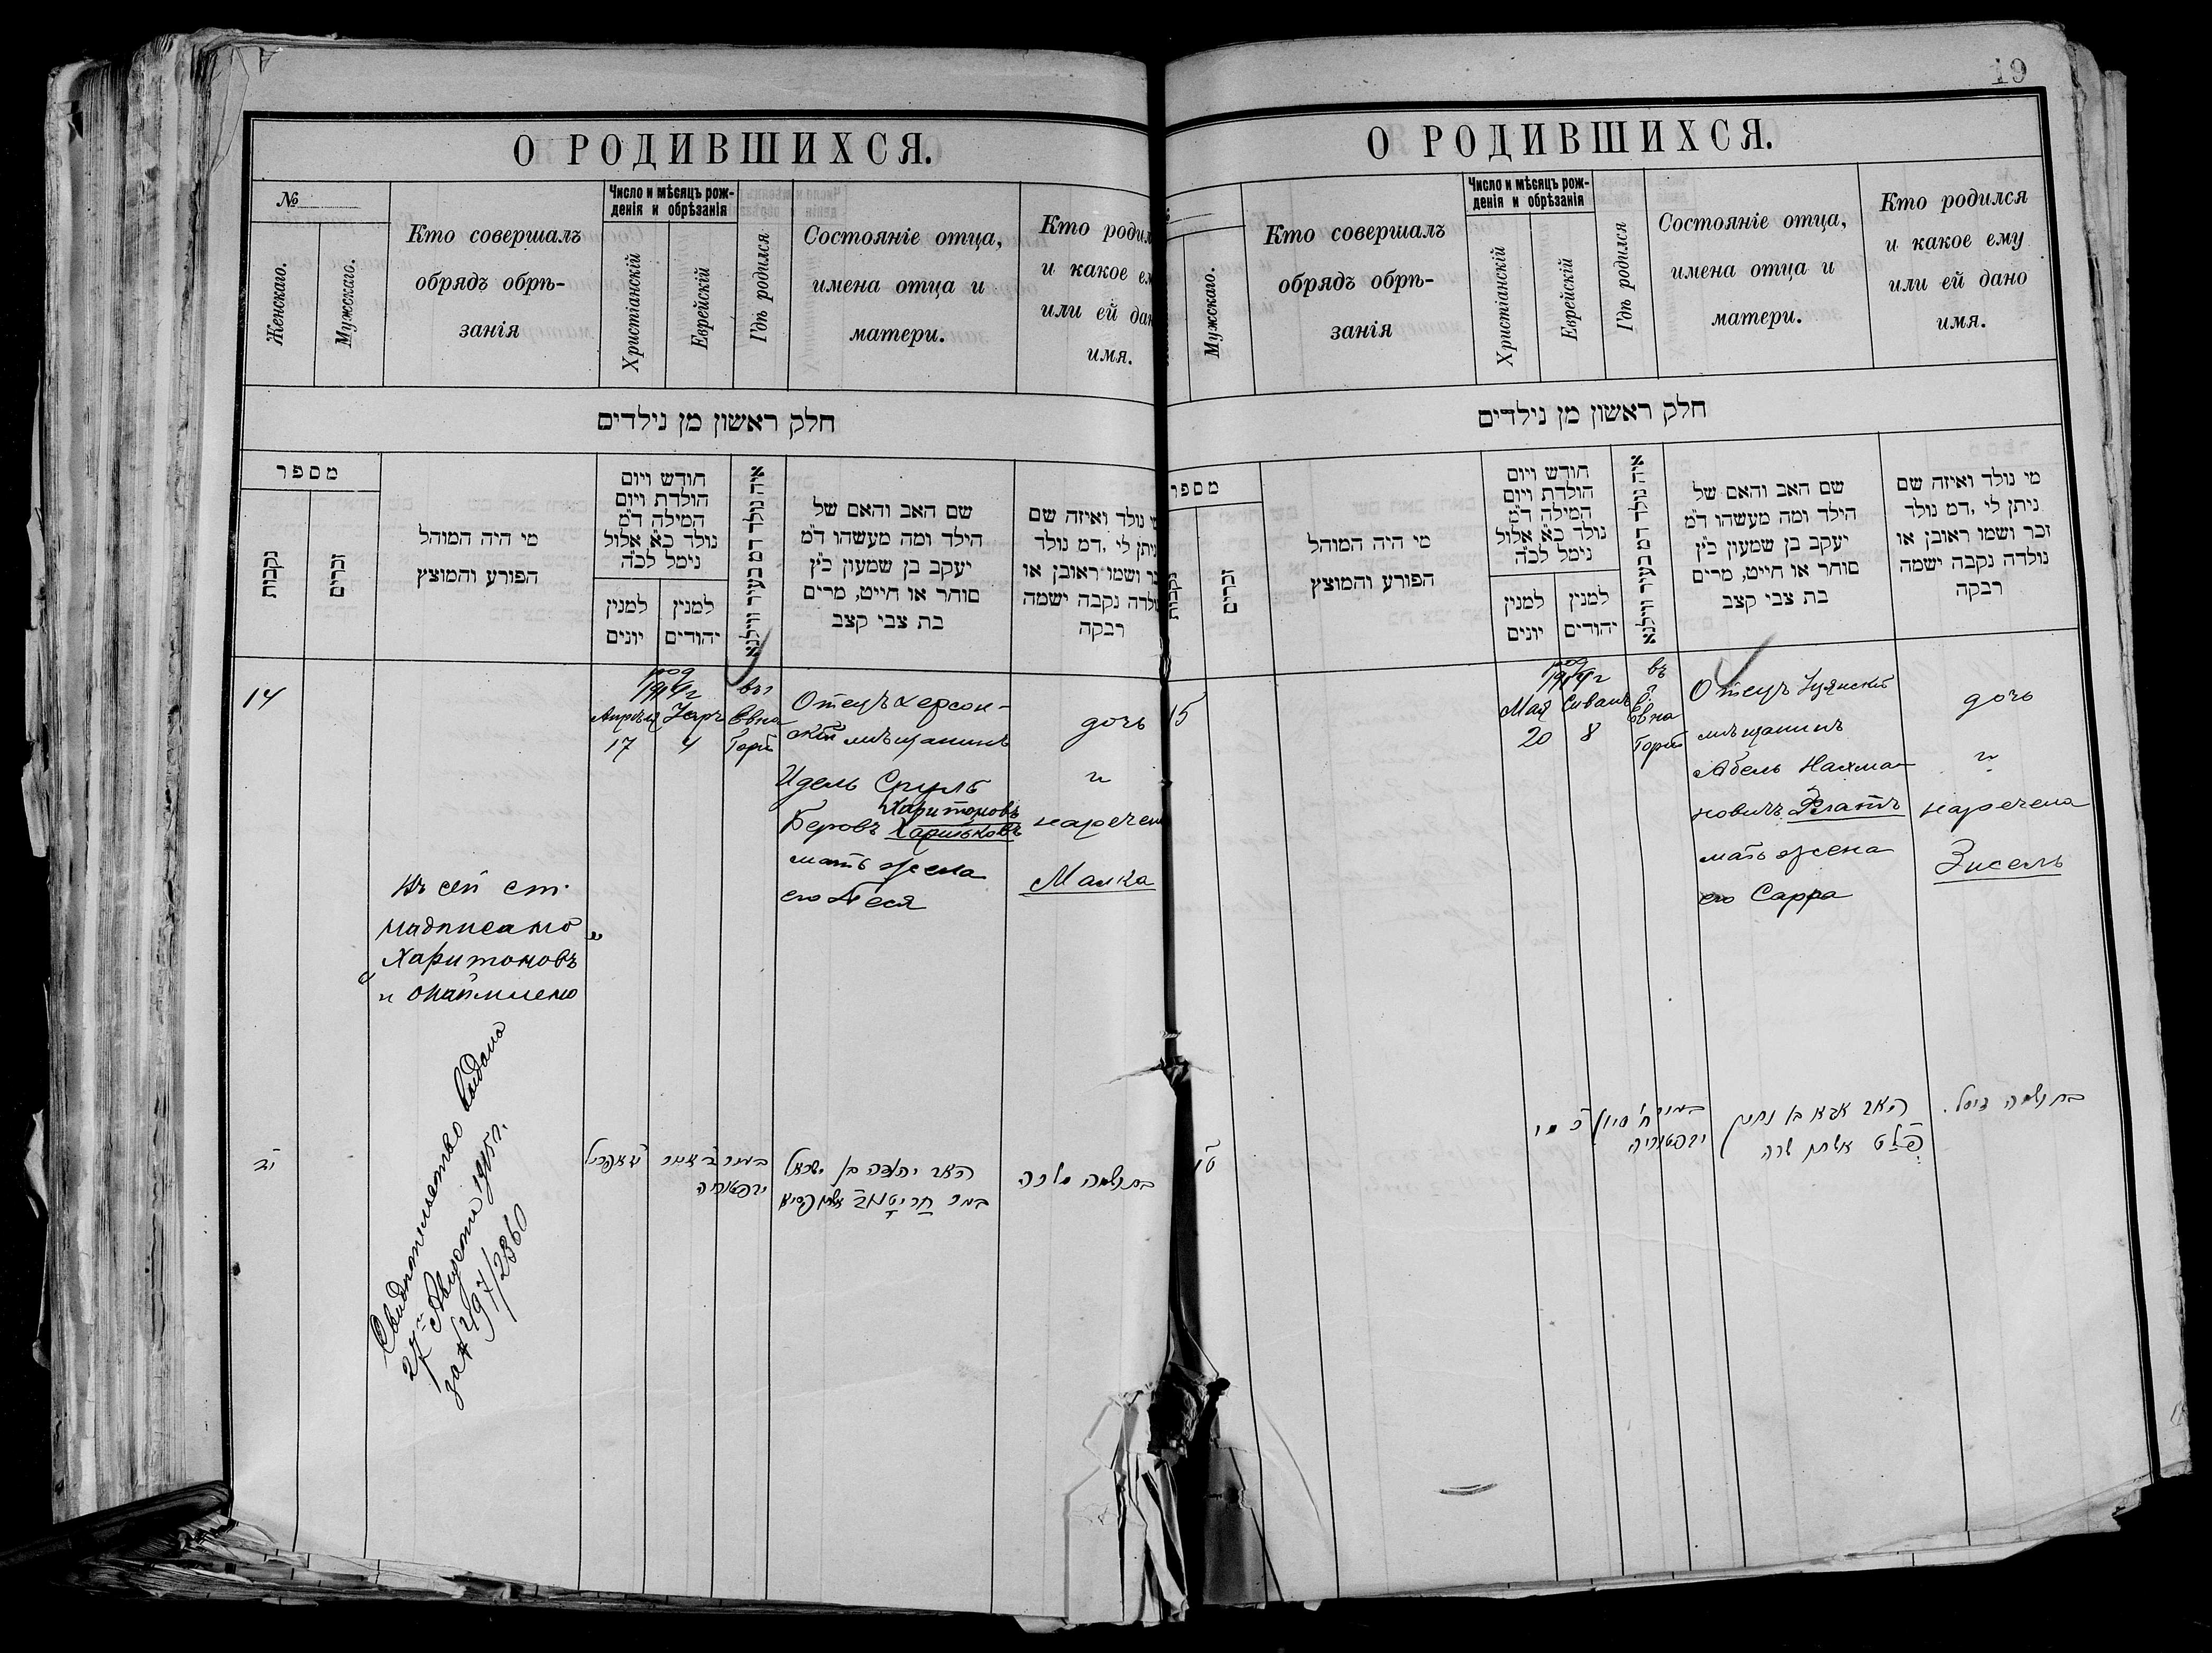 О РОДИВШИХСЯ.
№
Женскаго.
Мужскаго.
Кто совершалъ
обрядъ обрѣ-
занія
Число и мѣсяцъ рож-
денія и обрѣзанія
Христіанскій
Еврейскій
Гдѣ родился
Состояніе отца,
имена отца и
матери.
Кто родил
и какое ем
или ей дан
имя.
חלק ראשון מן נילדים
מספר
נקבות
זכרים
מי היה המוהל
הפורע והמוצץ
חודש ויום
הולדת ויום
המילה ד״מ
נולד כא אלול
נימל לכ״ה
למנין
יונים
למנין
יהודים
איה נולד דמ בעיר ווילנא
שם האב והאם של
הילד ומה מעשהו ד״מ
יעקב בן שמעון כ״ץ
סוחר או חייט, מרים
בת צבי קצב
י נולד ואיזה שם
ניתן לי ,דמ נולד
כר ושמו ראובן או
ולדה נקבה ישמה
רבקה
14
1914 г
Апрѣля
17
4
въ г
Евпа
Отецъ херсон-
скій мѣщанинъ
Идель Сруль
Беровъ Харитоновъ
Харьковъ
мать жена
его Песя
дочь
и
наречен
Малка
Въ сей ст.
надписано
„Харитоновъ"
и
Свидѣтельство выдано
27 Августа 1915 г.
за № 497/2860
יד
בת ושמה מלכה
19
О РОДИВШИХСЯ.
Мужскаго.
Кто совершалъ
обрядъ обрѣ-
занія
Число и мѣсяцъ рож-
денія и обрѣзанія
Христіанскій
Еврейскій
Гдѣ родился
Состояніе отца,
имена отца и
матери.
Кто родился
и какое ему
или ей дано
имя.
חלק ראשון מן נילדים
מספר
נקבות
זכרים
מי היה המוהל
הפורע והמוצץ
חודש ויום
הולדת ויום
המילה ד״מ
נולד כא אלול
נימל לכ״ה
למנין
יונים
למנין
יהודים
איה נולד דמ בעיר ווילנא
שם האב והאם של
הילד ומה מעשהו ד״מ
יעקב בן שמעון כ״ץ
סוחר או חייט, מרים
בת צבי קצב
מי נולד ואיזה שם
ניתן לי ,דמ נולד
זכר ושמו ראובן או
נולדה נקבה ישמה
רבקה
15
1914 г
Мая
20
Сиванъ
8
въ
г
Евпа
Отецъ
мѣщанинъ
Абель Нахма-
новичъ Флатъ
мать жена
его Сарра
дочь
и
наречена
Зисель
טו
אשתו שרה
בת ושמה זיסל.